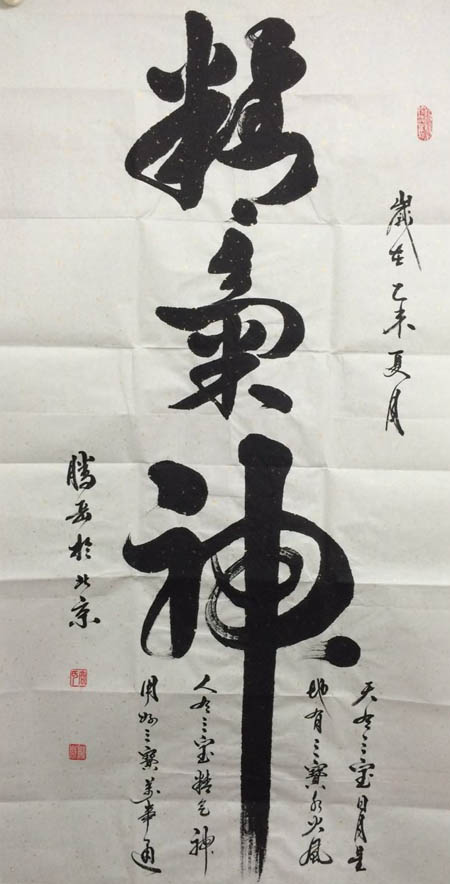 歲在乙未夏月
精氣神
天有三宝日月星
地有三寶水火風
人有三宝精气神
用好三寶萬事通
勝岳於北京